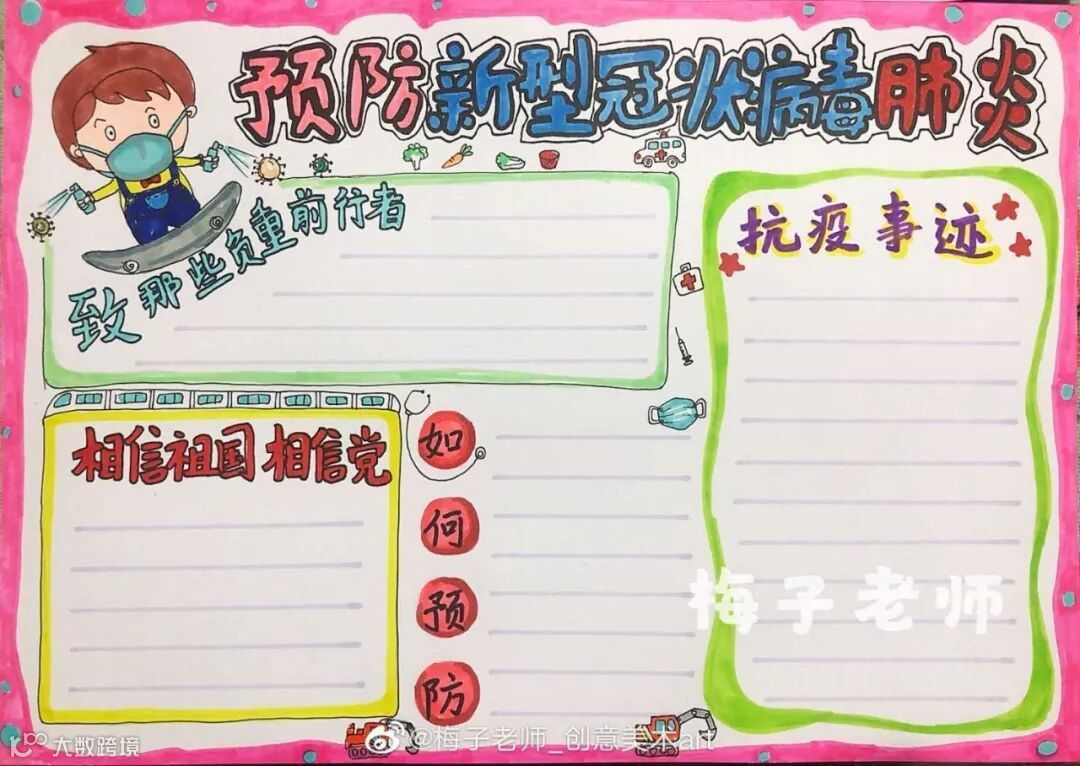 预防新型冠状病毒肺炎
致那些负重前行者
抗疫事迹
相信祖国 相信党
如
何
预
防
梅子老师
@梅子老师_创意美术art
大数跨境